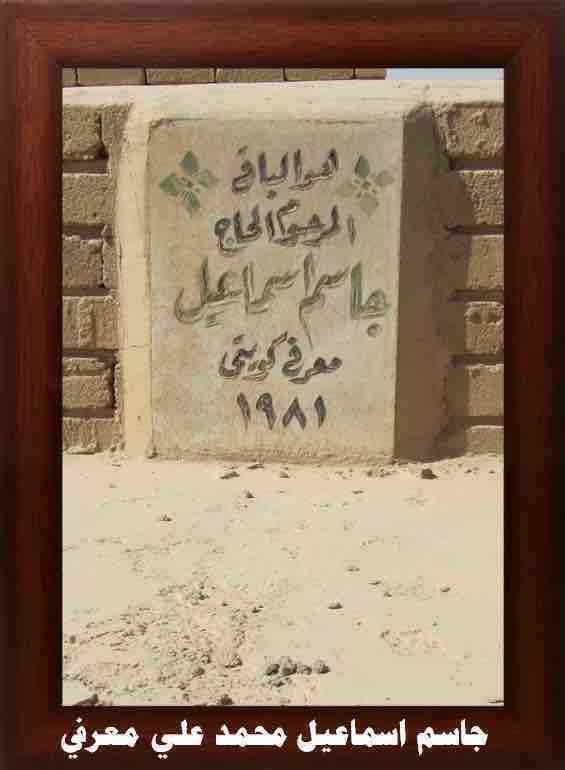 هو الباقي
المرحوم الحاج
جاسم اسماعيل
معرفي كويتي
١٩٨١
جاسم اسماعيل محمد علي معرفي